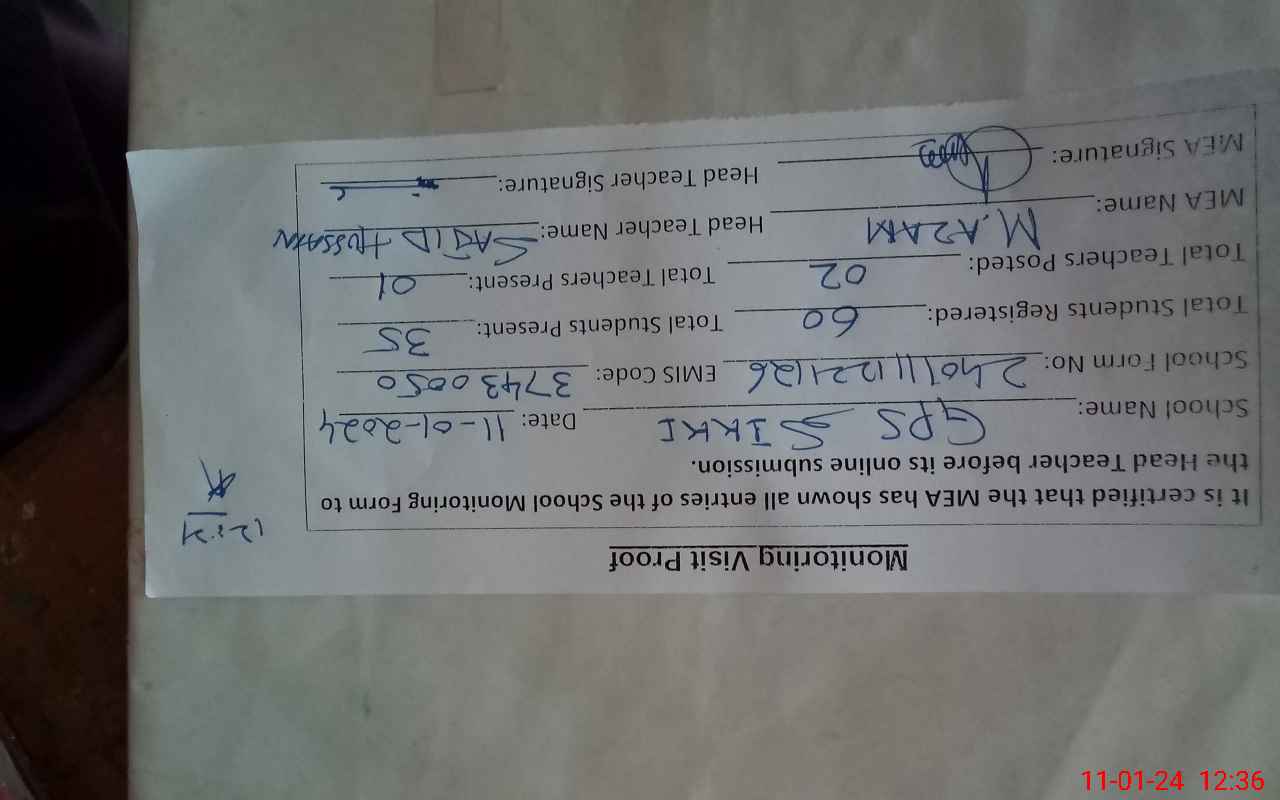 Monitoring Visit Proof
It is certified that the MEA has shown all entries of the School Monitoring Form to
the Head Teacher before its online submission.
12:21
School Name: GPS SIKKI Date: 11-01-2024
School Form No: 240111122126 EMIS Code: 37430050
Total Students Registered: 60 Total Students Present: 35
Total Teachers Posted: 02 Total Teachers Present: 01
MEA Name: M. AZAM Head Teacher Name: SAJID HUSSAIN
MEA Signature: Head Teacher Signature:
11-01-24 12:36